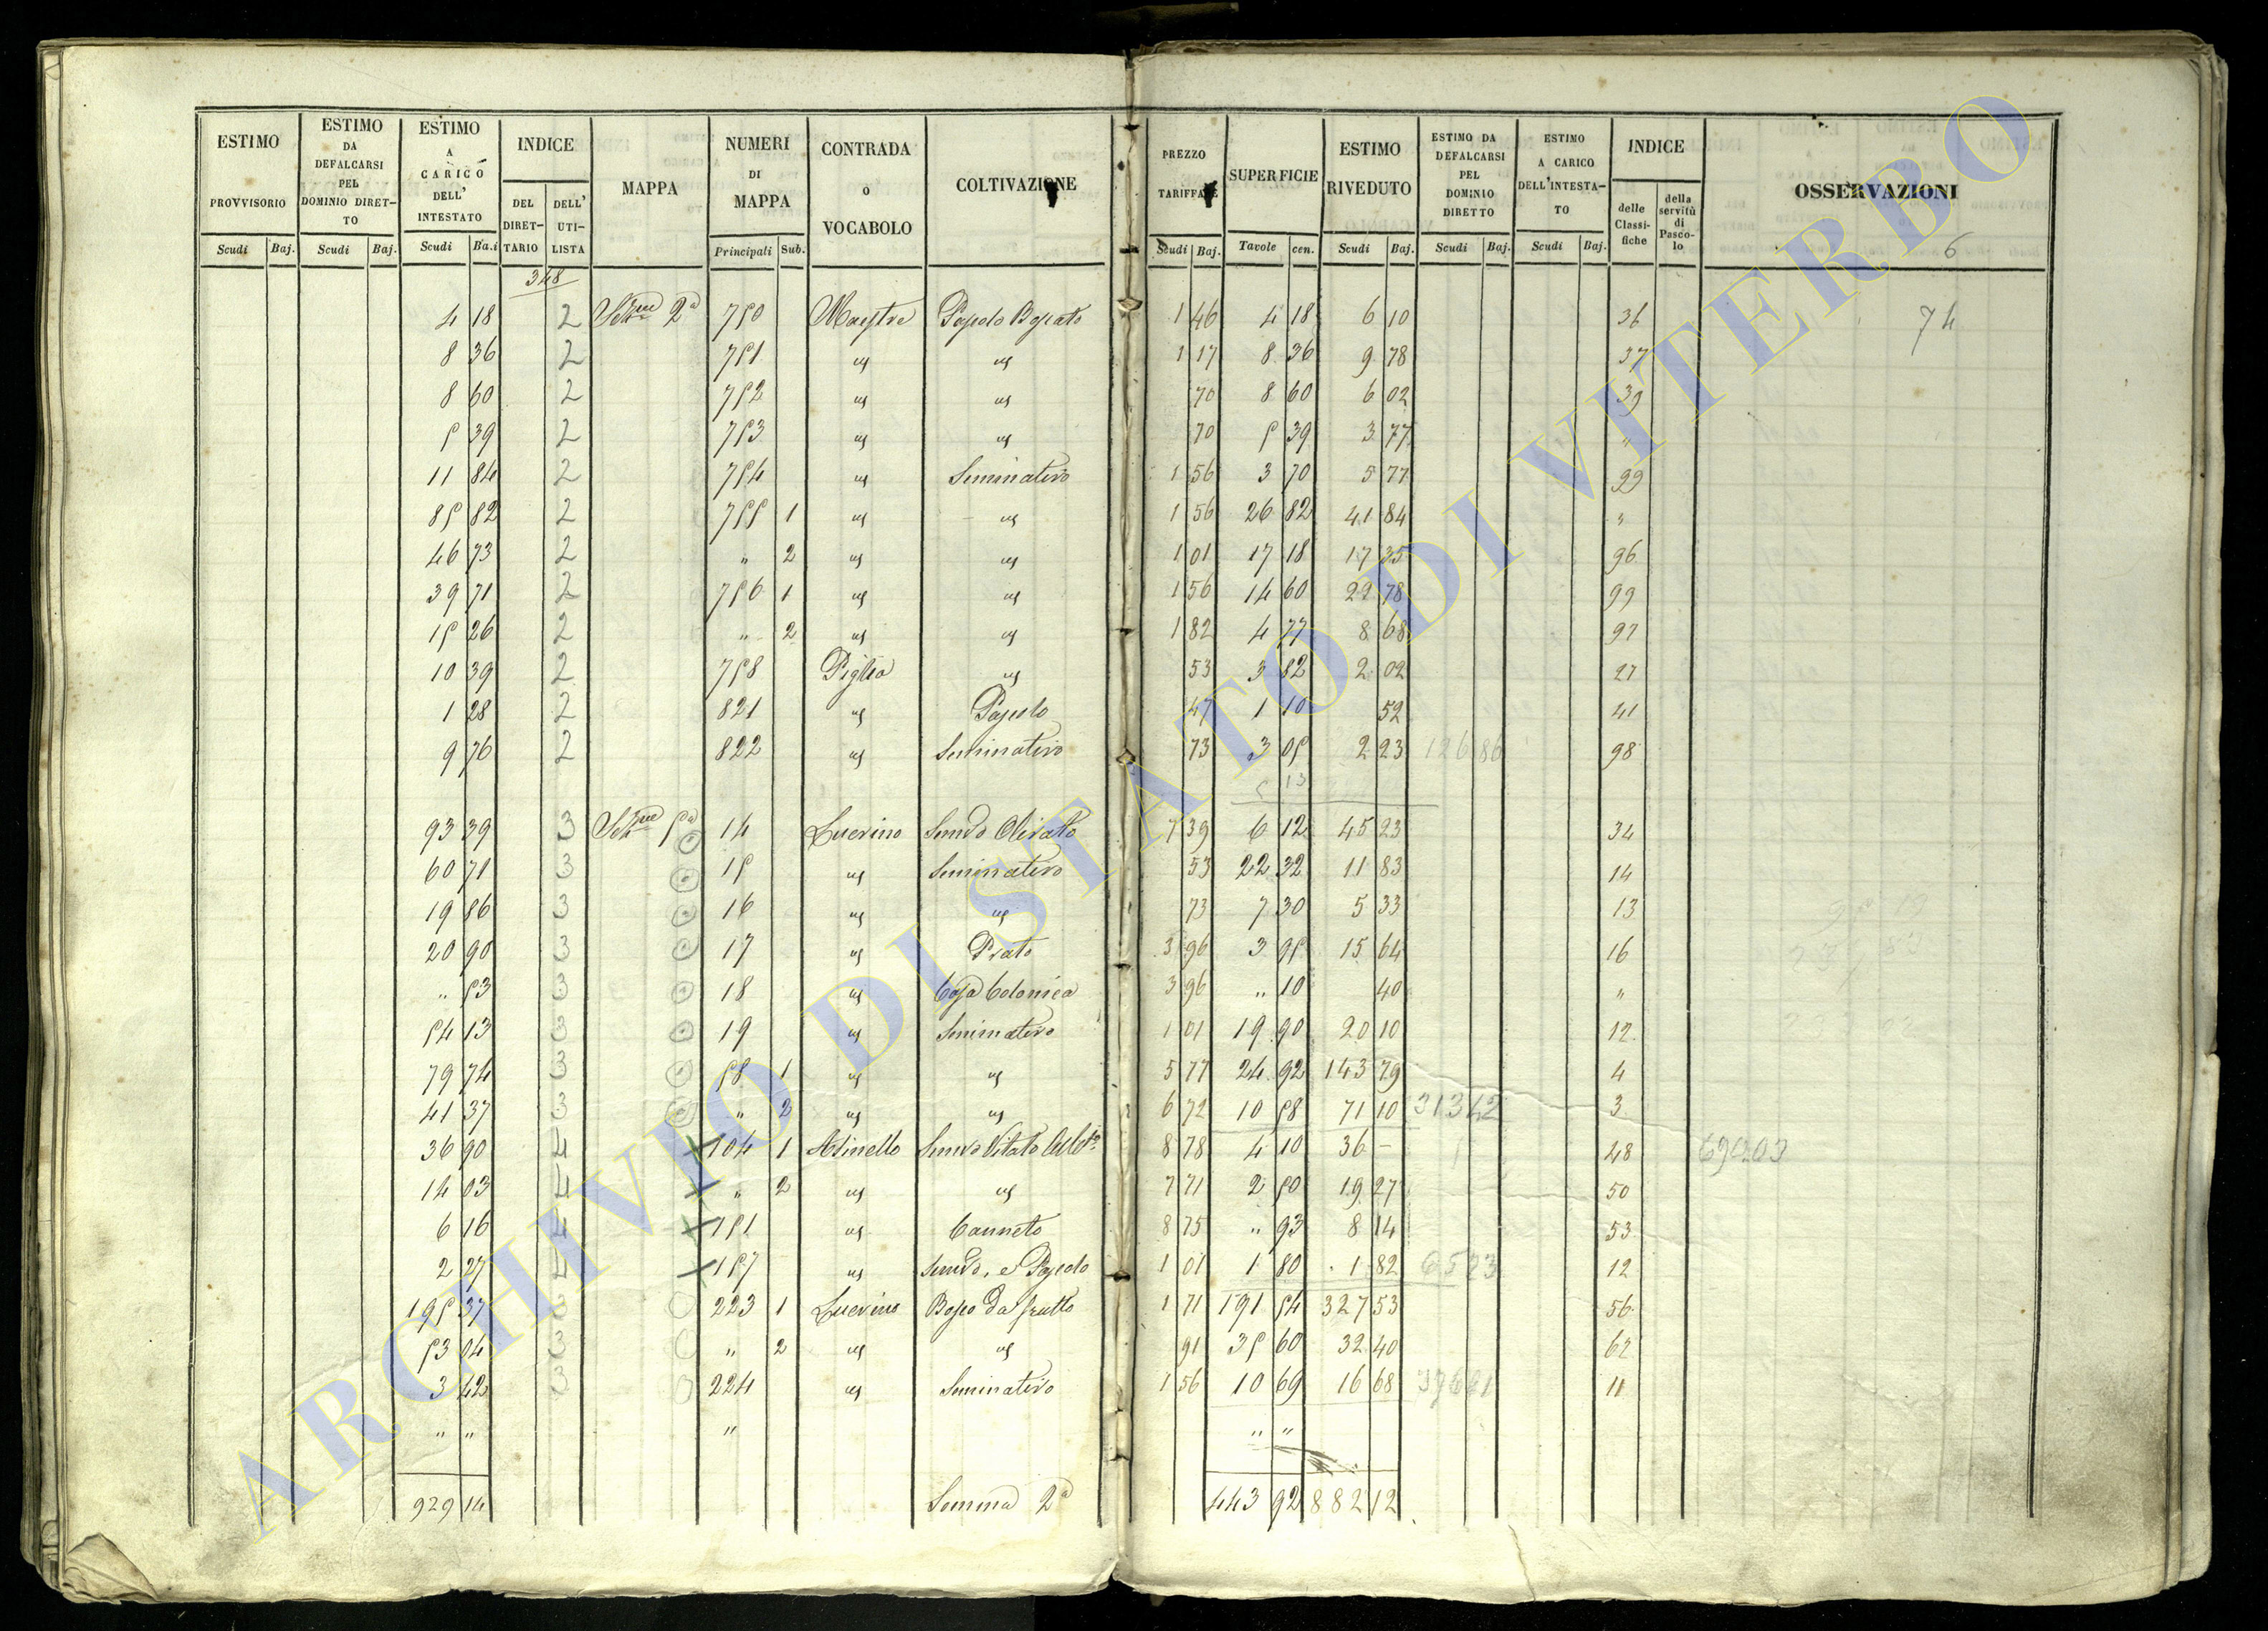 ESTIMO PROVVISORIO
ESTIMO DA DEFALCARSI PEL DOMINIO DIRET-TO
ESTIMO A CARICO DELL' INTESTATO
INDICE
DEL DIRET-TARIO
DELL' UTI-LISTA
MAPPA
NUMERI DI MAPPA
CONTRADA O VOCABOLO
COLTIVAZIONE
PREZZO TARIFFALE
SUPERFICIE
ESTIMO RIVEDUTO
ESTIMO DA DEFALCARSI PEL DOMINIO DIRETTO
ESTIMO A CARICO DELL'INTESTA-TO
INDICE
delle Classi-fiche
della servitù di Pasco-lo
OSSERVAZIONI
Scudi Baj. Scudi Baj. Scudi Ba.i Principali Sub. Scudi Baj. Tavole cen. Scudi Baj. Scudi Baj. Scudi Baj. 6
348
4 18 2 2a 750 Maestre Pascolo Boscato 1 46 4 18 6 10 36 74
8 36 2 751 " " 1 17 8 36 9 78 37
8 60 2 752 " " 70 8 60 6 02 39
5 39 2 753 " " 70 5 39 3 77 "
11 84 2 754 " Seminativo 1 56 3 70 5 77 99
85 82 2 755 1 " " 1 56 26 82 41 84 "
46 73 2 " 2 " " 1 01 17 18 17 35 96
39 71 2 756 1 " " 1 56 14 60 22 78 99
15 26 2 " 2 " " 1 82 4 77 8 68 97
10 39 2 758 Piglio " 53 3 82 2 02 27
1 28 2 821 " Pascolo 47 1 10 52 41
9 76 2 822 " Seminativo 73 3 05 2 23 126 86 98
93 39 3 5a 14 Lucrino Semvo Olivato 7 39 6 12 45 23 34
60 71 3 15 " Seminativo 53 22 32 11 83 14
19 86 3 16 " " 73 7 30 5 33 13
20 90 3 17 " Prato 3 96 3 95 15 64 16
" 53 3 18 " Casa Colonica 3 96 " 10 40 "
54 13 3 19 " Seminativo 1 01 19 90 20 10 12
79 74 3 58 1 " " 5 77 24 92 143 79 4
41 37 3 " 2 " " 6 72 10 58 71 10 313 42 3
36 90 4 104 1 Asinello Semvo Vitato 8 78 4 10 36 – 48
14 03 4 " 2 " " 7 71 2 50 19 27 50
6 16 4 151 " Canneto 8 75 " 93 8 14 53
2 27 4 157 " Semvo. e Pascolo 1 01 1 80 1 82 65 23 12
195 37 3 223 1 Lucrino Bosco da frutto 1 71 191 54 327 53 56
53 04 3 " 2 " " 91 35 60 32 40 62
3 42 3 224 " Seminativo 1 56 10 69 16 68 11
" " " " "
929 14 Somma 2a 443 92 882 12
ARCHIVIO DI STATO DI VITERBO